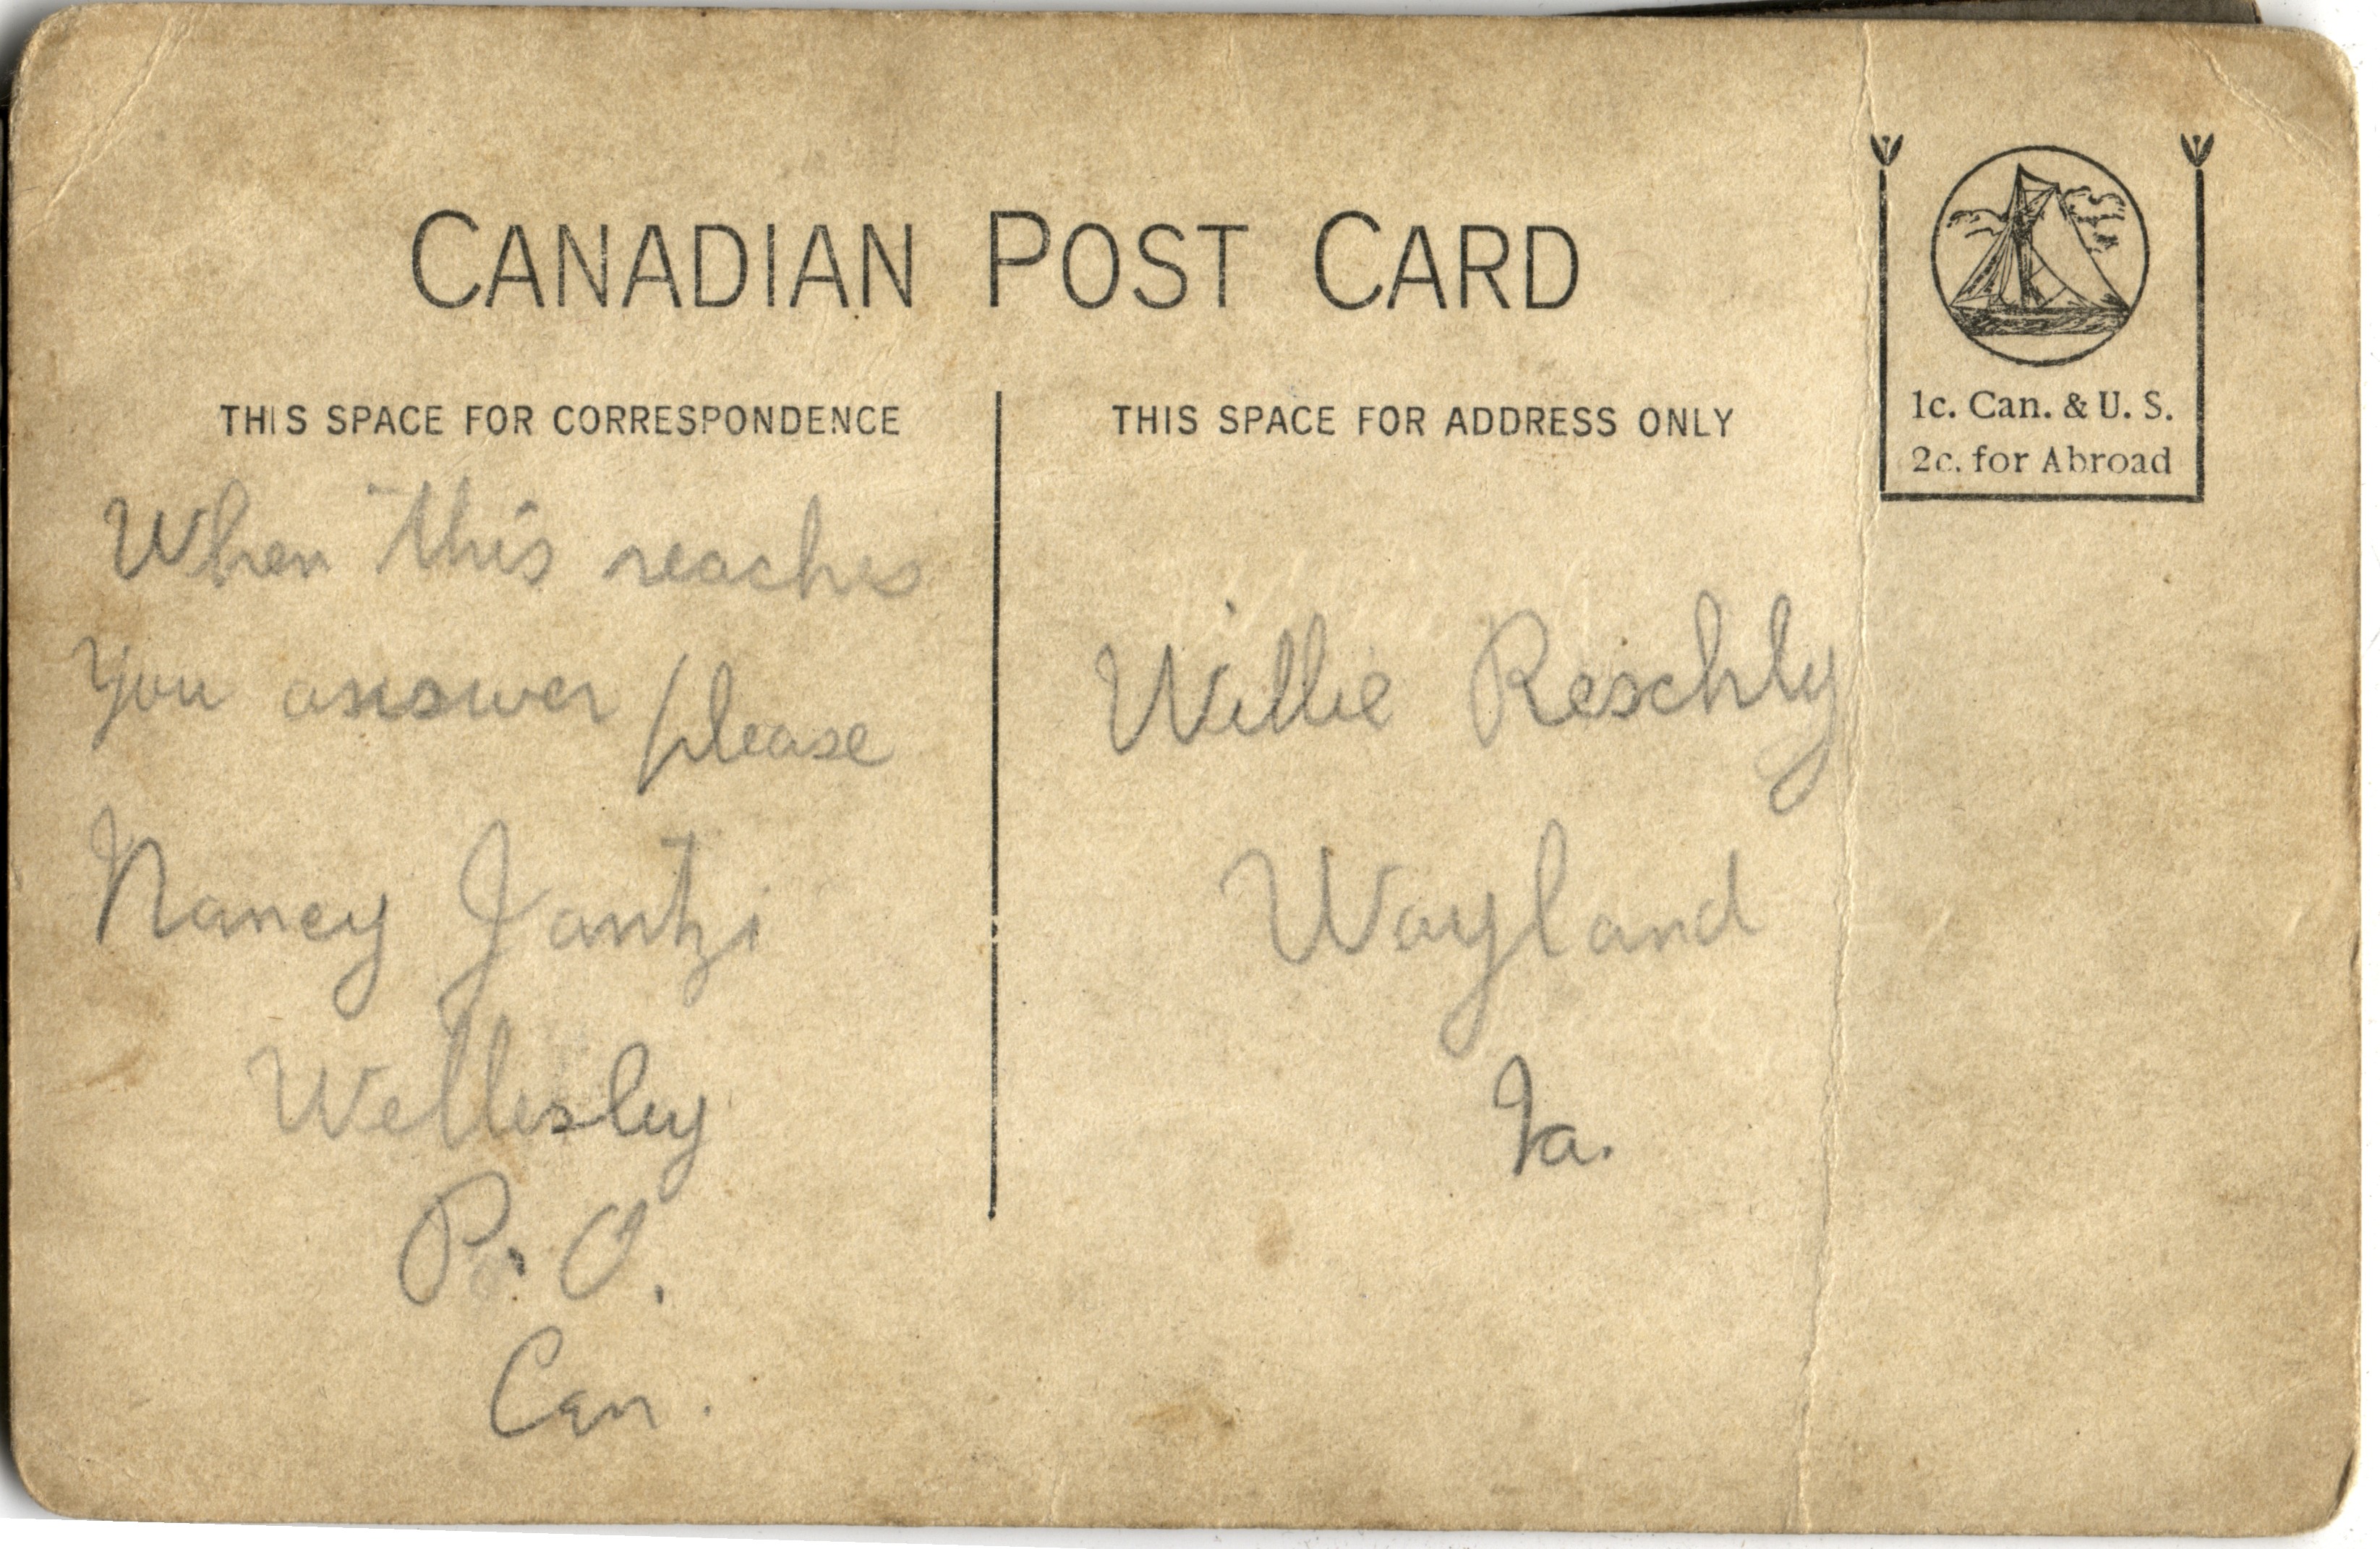 CANADIAN POST CARD
THIS SPACE FOR CORRESPONDENCE
When this reaches
you answer please
Nancy Jantzi
Wellesley
P. O.
Can.
THIS SPACE FOR ADDRESS ONLY
Willie Reschly
Wayland
Ia.
1c. Can. & U. S.
2c. for Abroad